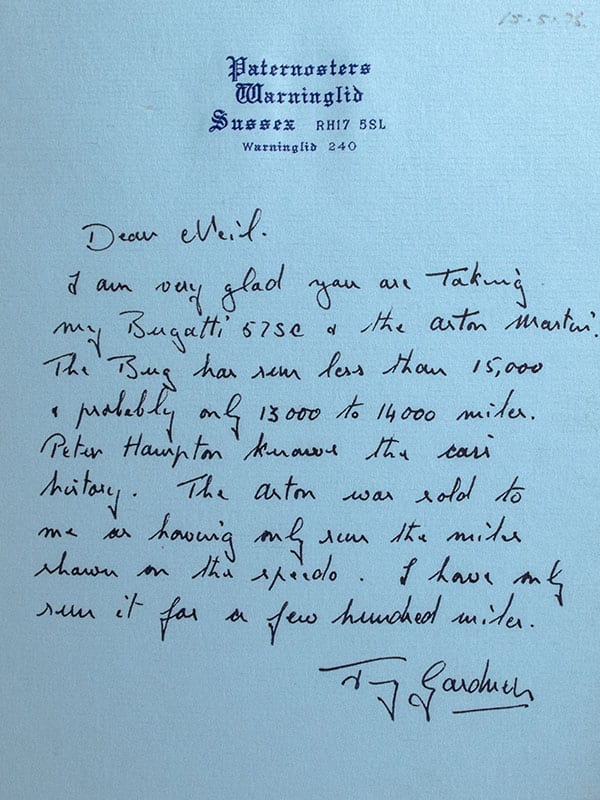 15.5.76.
Paternosters
Warninglid
Sussex RH17 5SL
Warninglid 240
Dear Neil.
I am very glad you are taking
my Bugatti 57SC & the aston Martin.
The Bug has run less than 15,000
& probably only 13000 to 14000 miles.
Peter Hampton knows the cars
history. The aston was sold to
me as having only run the miles
shown on the speedo. I have only
run it for a few hundred miles.
Gardner